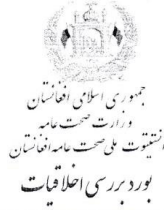 جمهوری اسلامی افغانستان
وزارت صحت عامه
انستیتوت ملی صحت عامه افغانستان
بورد بررسی اخلاقیات